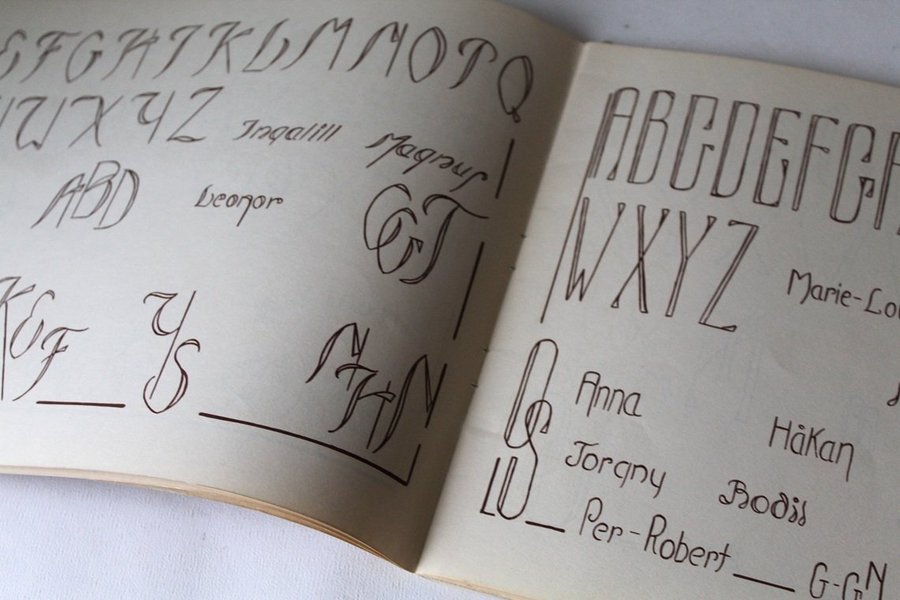 EFGHIKLMNOPQ
WXYZ Ingalill Magnus
ABD Leonor GGT
KEF YS NHN
ABCDEFG
WXYZ Marie-Lou
OS Anna Håkan
LU Torgny Bodil
Per-Robert G-GN